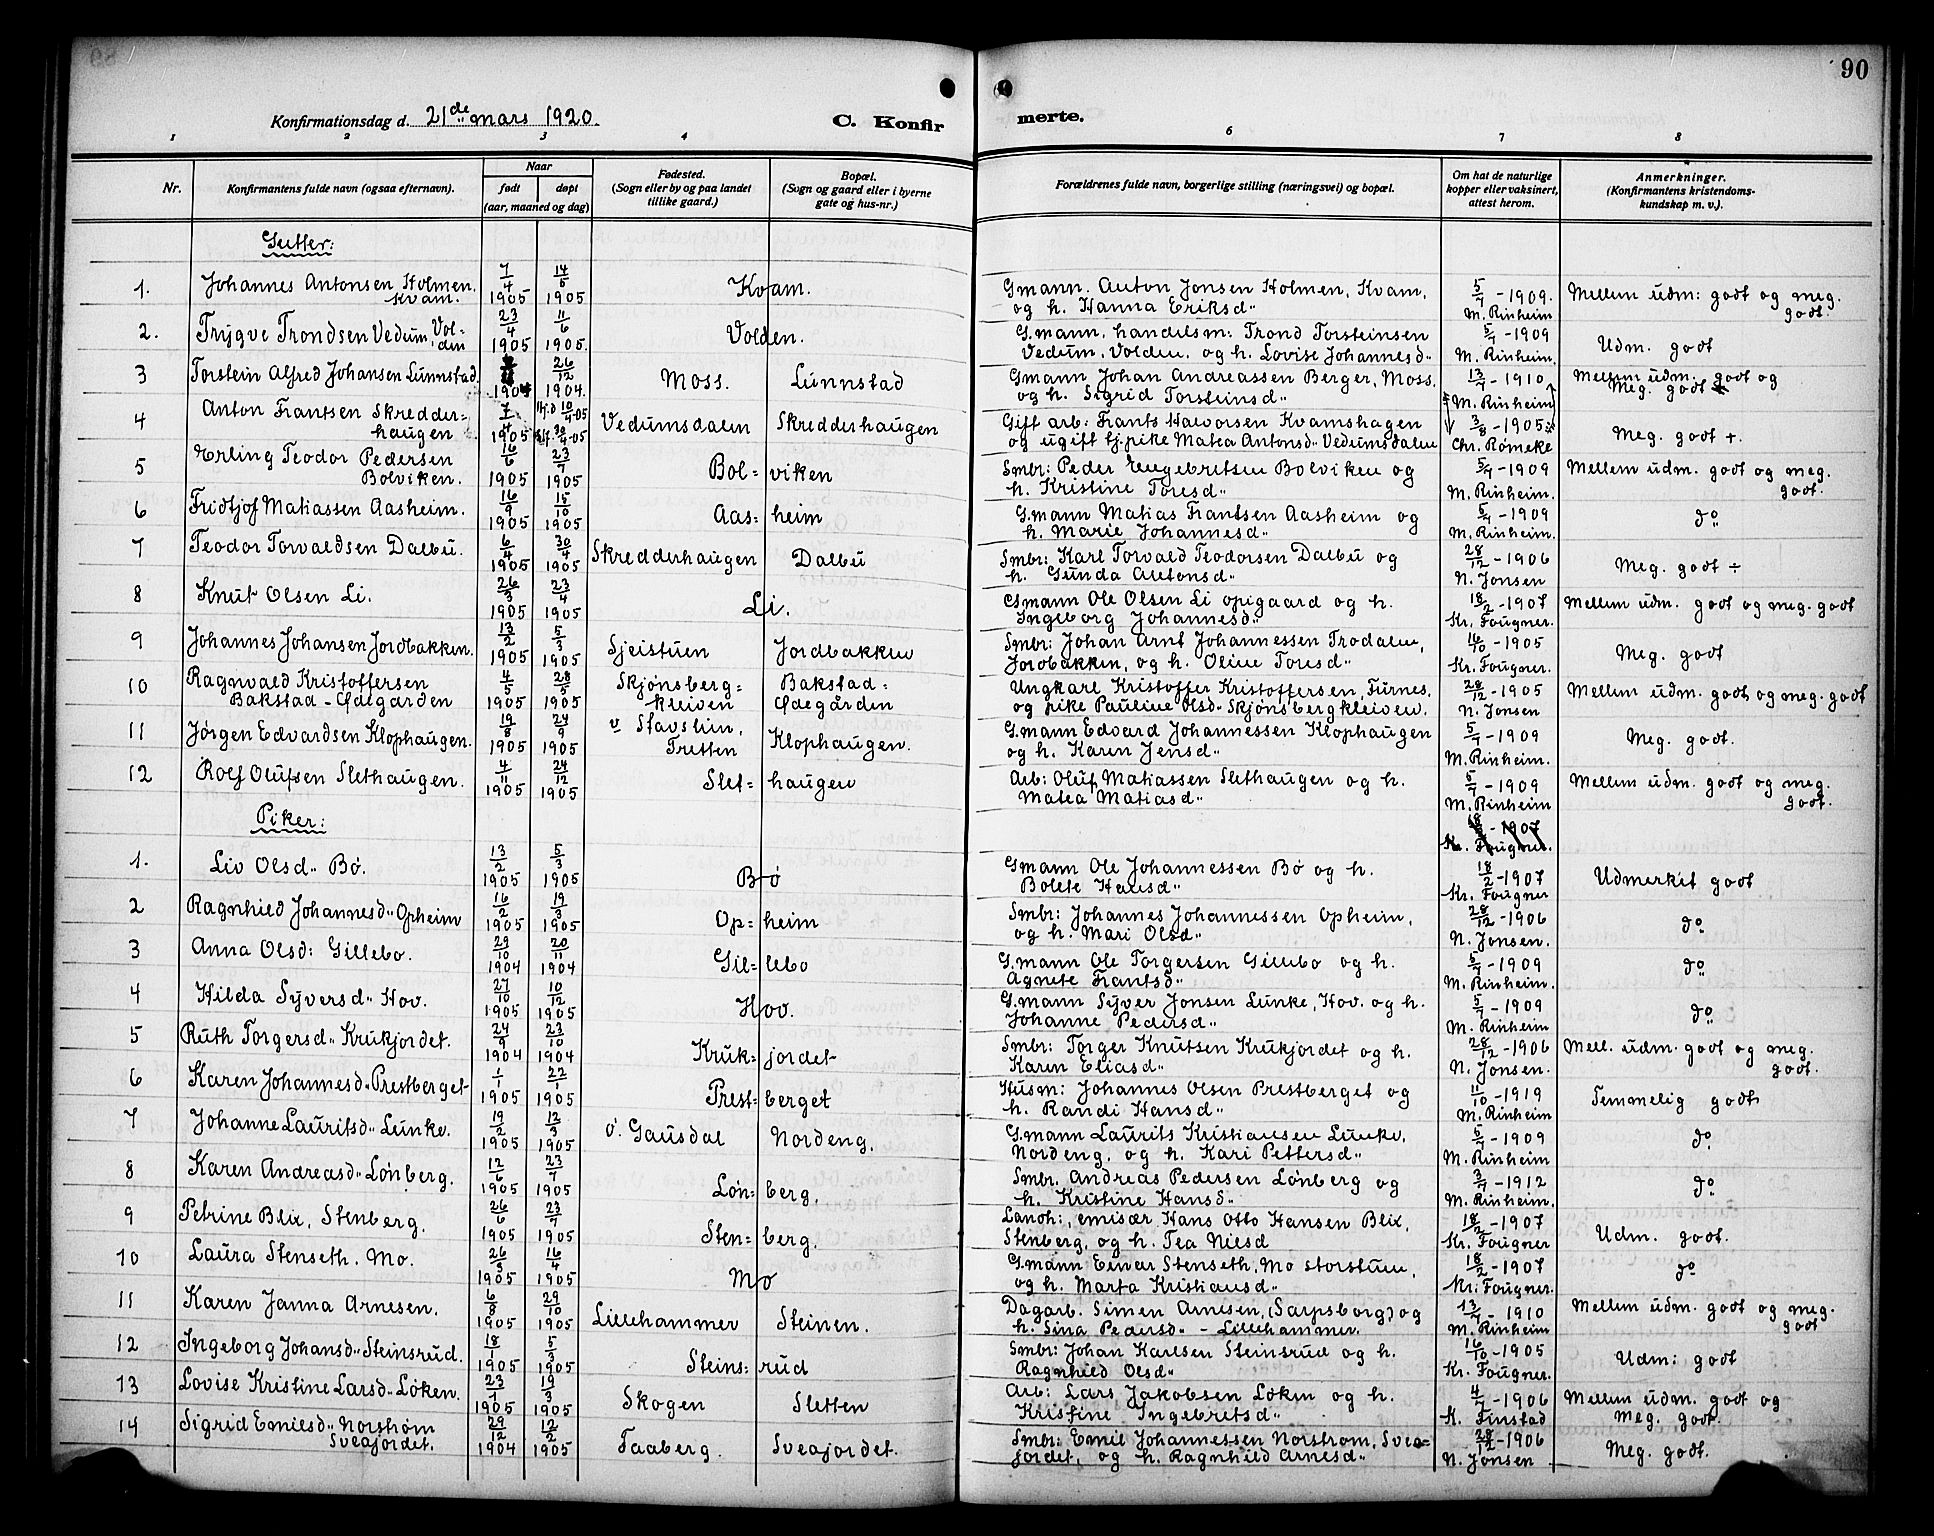 90
Konfirmationsdag d. 21de mars 1920.
C. Konfirmerte.
1 2 3 4 6 7 8
Nr.
Konfirmantens fulde navn (ogsaa efternavn).
Naar
født døpt
(aar, maaned og dag)
Fødested.
(Sogn eller by og paa landet
tillike gaard.)
Bopæl.
(Sogn og gaard eller i byerne
gate og hus-nr.)
Forældrenes fulde navn, borgerlige stilling (næringsvei) og bopæl.
Om hat de naturlige
kopper eller vaksinert,
attest herom.
Anmerkninger.
(Konfirmantens kristendoms-
kundskap m. v.).
Gutter:
1. Johannes Antonsen Holmen. Kvam. 7/4 1905 14/5 1905 Kvam. Gmann. Anton Jonsen Holmen, Kvam, og h. Hanna Eriksd" 5/7 - 1909. M. Rinheim Mellem udm: godt og meg. godt.
2. Trygve Trondsen Vedum, Volden 23/4 1905 11/6 1905. Volden. G.mann, handelsm: Trond Torsteinsen Vedum, Volden, og h. Lovise Johannesd" 5/7 - 1909 M. Rinheim. Udm. godt
3 Torstein Alfred Johansen Lunnstad 1904 26/12 1904. Moss. Lunnstad Gmann Johan Andreassen Berger, Moss. og h. Sigrid Torsteinsd" 13/7 - 1910 M. Rinheim Mellem udm. godt og Meg. godt
4 Anton Frantsen Skredderhaugen 7/4 1905 10/4-05 30/4-05 Vedumsdalen Skredderhaugen Gift arb: Frants Halvorsen Kvamshagen og ugift tj.pike Matea Antonsd" Vedumsdalen 3/8 - 1905 Chr. Rømcke Meg. godt +.
5 Erling Teodor Pedersen Bolviken. 16/6 1905 23/7 1905 Bol= viken Smbr: Peder Engebretsen Bolviken og h. Kristine Toresd" 5/7 - 1909 M. Rinheim. Mellem udm. godt og meg. godt.
6 Fridtjof Matiassen Aasheim. 16/9 1905 15/10 1905 Aas= heim G.mann Matias Frantsen Aasheim og h. Marie Johannesd" 5/7 - 1909 M. Rinheim. do
7 Teodor Torvaldsen Dalbu. 6/4 1905 30/4 1905 Skredderhaugen Dalbu Smbr: Karl Torvald Teodorsen Dalbu og h. Gunda Antonsd" 28/12 - 1906 N. Jonsen Meg. godt ÷
8 Knut Olsen Li. 26/3 1905 23/4 1905 Li. Gmann Ole Olsen Li opigaard og h. Ingeborg Johannesd" 18/2 - 1907 Kr. Fougner. Mellem udm. godt og meg. godt
9 Johannes Johansen Jordbakken. 13/2 1905 5/3 1905 Sjeistuen Jordbakken Smbr: Johan Arnt Johannessen Trodalen, Jordbakken, og h. Oline Toresd" 16/10 - 1905 Kr. Fougner. Meg. godt
10 Ragnvald Kristoffersen Bakstad - Ødegården 4/5 1905 28/5 1905 Skjønsberg= kleiven Bakstad= Ødegården Ungkarl Kristoffer Kristoffersen, Furnes. og pike Pauline Olsd" Skjønsbergkleiven. 28/12 - 1905 N. Jonsen Mellem udm. godt og meg. godt
11 Jørgen Edvardsen Klophaugen. 19/8 1905 24/9 1905 v Stavslien, Tretten Klophaugen. G.mann Edvard Johannessen Klophaugen og h. Karen Jensd" 5/7 - 1909 M. Rinheim. Meg. godt.
12 Rolf Olufsen Slethaugen. 4/11 1905 24/12 1905 Slet= haugen Arb: Oluf Matiassen Slethaugen og h. Matea Matiasd" 5/7 - 1909 M. Rinheim Mellem udm. godt og meg. godt.
Piker:
18/2 - 1907 Kr. Fougner.
1. Liv Olsd" Bø. 13/2 1905 5/3 1905 Bø Gmann Ole Johannessen Bø og h. Bolete Hansd" 18/2 - 1907 Kr. Fougner Udmerket godt
2 Ragnhild Johannesd" Opheim 16/2 1905 19/3 1905 Op= heim Smbr: Johannes Johannessen Opheim, og h. Mari Olsd" 28/12 - 1906 N. Jonsen. do
3 Anna Olsd: Gillebo. 29/10 1904 20/11 1904 Gil= lebo G.mann Ole Torgersen Gillebo og h. Agnete Frantsd" 5/7 - 1909 M. Rinheim. do
4 Hilda Syversd" Hov. 27/10 1905 10/12 1905 Hov. G.mann Syver Jonsen Lunke, Hov. og h. Johanne Pedersd" 5/7 - 1909 M. Rinheim do
5 Ruth Torgersd" Krukjordet. 24/9 1904 23/10 1904 Kruk= jordet Smbr: Torger Knutsen Krukjordet og h. Karen Eliasd" 28/12 - 1906 N. Jonsen. Mell. udm. godt og meg. godt.
6 Karen Johannesd" Prestberget 1/1 1905 22/1 1905 Prest= berget Husm: Johannes Olsen Prestberget og h. Randi Hansd" 11/10 - 1919 M. Rinheim Temmelig godt
7 Johanne Lauritsd" Lunke. 19/2 1905 12/3 1905 Ø. Gausdal Nordeng. G.mann Laurits Kristiansen Lunke, Nordeng, og h. Kari Pettersd" 5/7 - 1909 M. Rinheim do
8 Karen Andreasd" Lønberg. 12/6 1905 23/7 1905 Løn= berg. Smbr. Andreas Pedersen Lønberg og h. Kristine Hansd" 3/7 - 1912 M. Rinheim. do
9 Petrine Blix, Stenberg. 26/6 1905 23/7 1905 Sten= berg. Landh:, emisær Hans Otto Hansen Blix, Stenberg, og h. Tea Nilsd 18/2 - 1907 Kr. Fougner Udm. godt.
10 Laura Stenseth. Mo. 26/3 1905 16/4 1905 Mo G.mann Einar Stenseth, Mo storstuen, og h. Marta Kristiansd" 18/2 - 1907 Kr. Fougner. do
11 Karen Janna Arnesen. 6/8 1905 29/10 1905 Lillehammer Steinen. Dagarb. Simen Arnesen, (Sarpsborg) og h. Sina Pedersd" - Lillehammer. 13/7 - 1910 M. Rinheim Mellem udm. godt og meg. godt
12 Ingeborg Johansd" Steinsrud. 18/1 1905 5/3 1905 Steins= rud Smbr: Johan Karlsen Steinsrud og h. Ragnhild Olsd" 16/10 - 1905 Kr. Fougner. Udm: godt
13 Lovise Kristine Larsd" Løken. 23/1 1905 19/3 1905 Skogen Sletten Arb: Lars Jakobsen Løken og h. Kristine Ingebretsd" 4/7 - 1906 K. Finstad Mellem udm. godt og meg. godt.
14 Sigrid Emilsd" Norstrøm Sveajordet. 29/12 1904 12/2 1905 Faaberg. Sveajordet. Smbr: Emil Johannessen Norstrøm, Svea= jordet, og h. Ragnhild Arnesd" 28/12 - 1906 N. Jonsen Meg. godt.